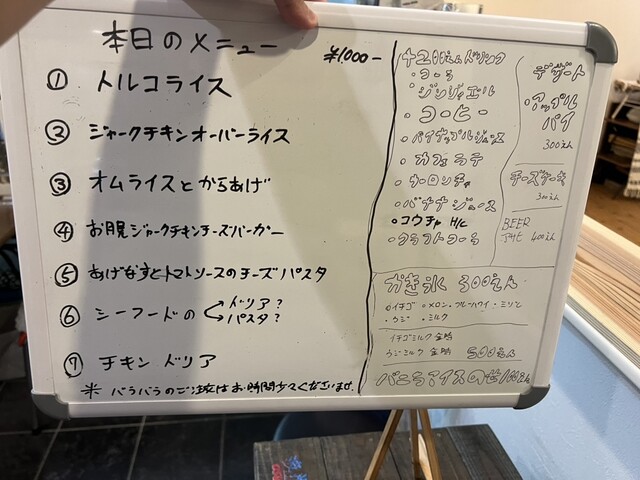 本日のメニュー
¥1000-
① トルコライス
② ジャークチキンオーバーライス
③ オムライスとからあげ
④ お肉ジャークチキンチーズバーガー
⑤ あげなすとトマトソースのチーズパスタ
⑥ シーフードの ドリア?
パスタ?
⑦ チキンドリア
※ バラバラのご注文はお時間少々くださいませ
+200えんドリンク
・コーラ
・ジンジャエール
・コーヒー
・パイナップルジュース
・カフェラテ
・ウーロンチャ
・バナナジュース
・コウチャ H/c
・クラフトコーラ
かき氷 300えん
・イチゴ ・メロン ・ブルーハワイ
・ウジ ・ミルク
イチゴミルク金時
ウジミルク金時 500えん
バニラアイスのせ100えん
デザート
・アップル
パイ
300えん
チーズケーキ
300えん
BEER
アサヒ 400えん